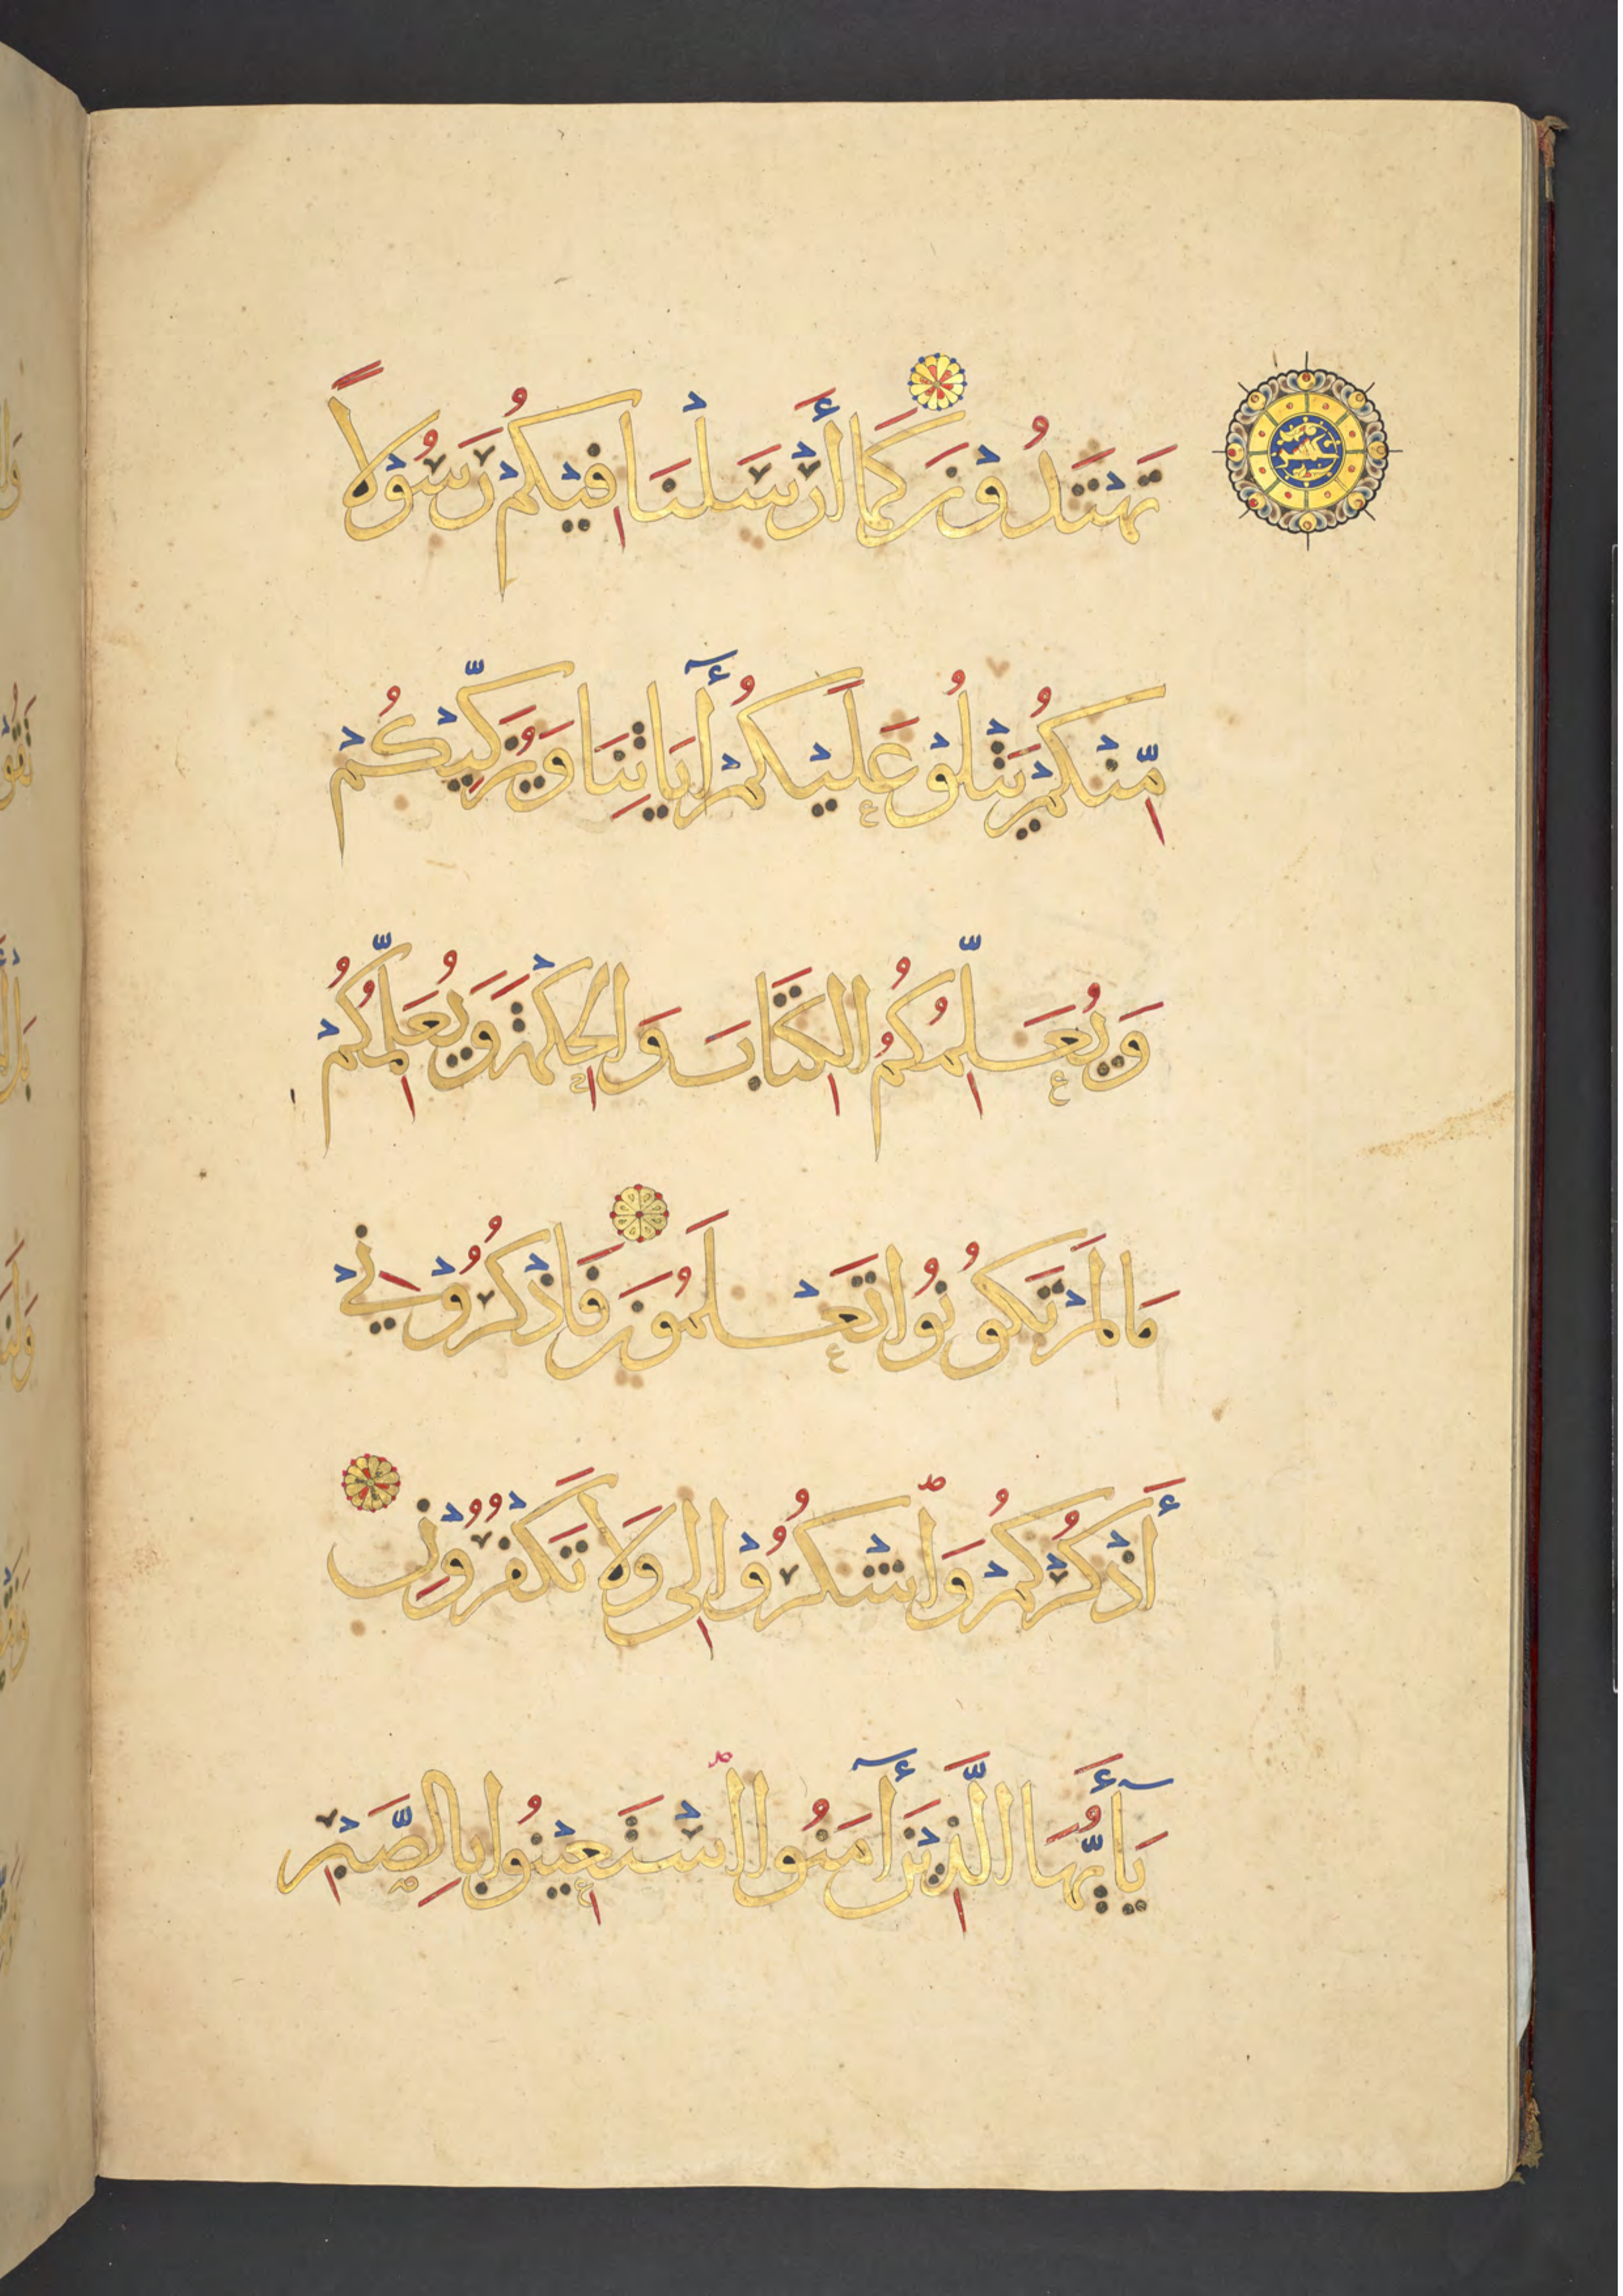 تَهْتَدُوْنَ كَمَا أَرْسَلْنَا فِيْكُمْ رَسُوْلاً
مِّنْكُمْ يَتْلُوْ عَلَيْكُمْ أٰيَاتِنَا وَيُزَكِّيْكُمْ
وَيُعَلِّمُكُمُ الْكِتَابَ وَالْحِكْمَةَ وَيُعَلِّمُكُمْ
مَا لَمْ تَكُوْنُوا تَعْلَمُوْنَ فَاذْكُرُوْنِيْ
أَذْكُرْكُمْ وَاشْكُرُوْا لِى وَلَا تَكْفُرُوْنِ
يَا أَيُّهَا الَّذِيْنَ أٰمَنُوا اسْتَعِيْنُوا بِالصَّبْرِ